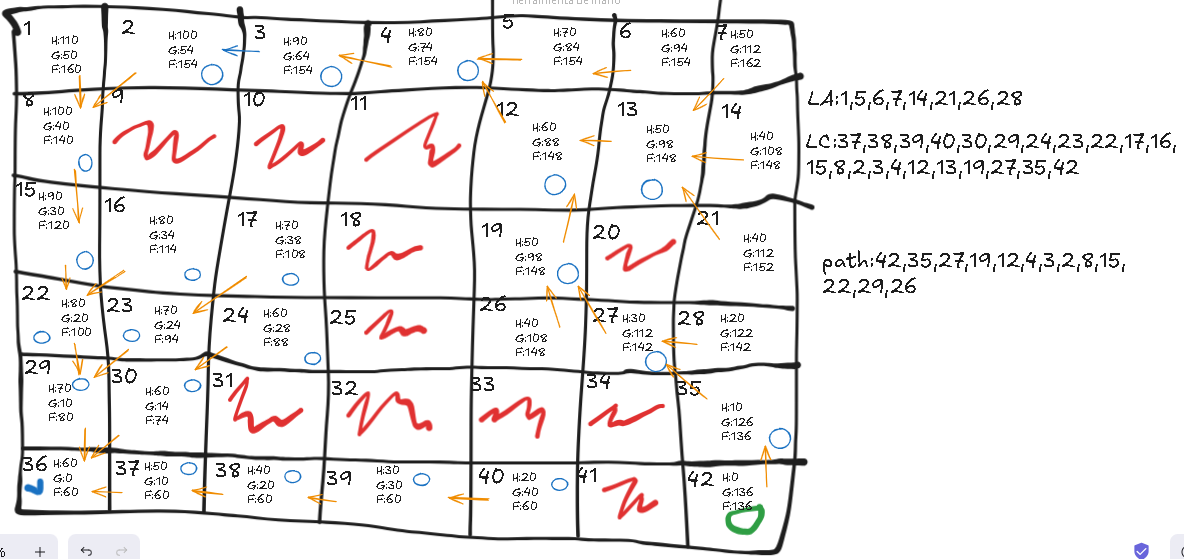 herramienta de mano
1
H:110
G:50
F:160
2
H:100
G:54
F:154
3
H:90
G:64
F:154
4
H:80
G:74
F:154
5
H:70
G:84
F:154
6
H:60
G:94
F:154
7
H:50
G:112
F:162
8
H:100
G:40
F:140
9
10
11
12
H:60
G:88
F:148
13
H:50
G:98
F:148
14
H:40
G:108
F:148
15
H:90
G:30
F:120
16
H:80
G:34
F:114
17
H:70
G:38
F:108
18
19
H:50
G:98
F:148
20
21
H:40
G:112
F:152
22
H:80
G:20
F:100
23
H:70
G:24
F:94
24
H:60
G:28
F:88
25
26
H:40
G:108
F:148
27
H:30
G:112
F:142
28
H:20
G:122
F:142
29
H:70
G:10
F:80
30
H:60
G:14
F:74
31
32
33
34
35
H:10
G:126
F:136
36
H:60
G:0
F:60
37
H:50
G:10
F:60
38
H:40
G:20
F:60
39
H:30
G:30
F:60
40
H:20
G:40
F:60
41
42
H:0
G:136
F:136
LA:1,5,6,7,14,21,26,28
LC:37,38,39,40,30,29,24,23,22,17,16,
15,8,2,3,4,12,13,19,27,35,42
path:42,35,27,19,12,4,3,2,8,15,
22,29,26
%